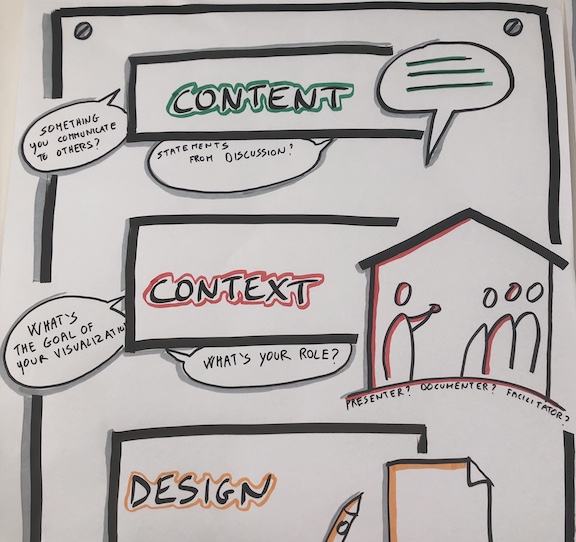 CONTENT
SOMETHING
YOU COMMUNICATE
TO OTHERS?
STATEMENTS
FROM DISCUSSION?
CONTEXT
WHAT'S
THE GOAL OF
YOUR VISUALIZATIO
WHAT'S YOUR ROLE?
PRESENTER? DOCUMENTER? FACILITATOR?
DESIGN